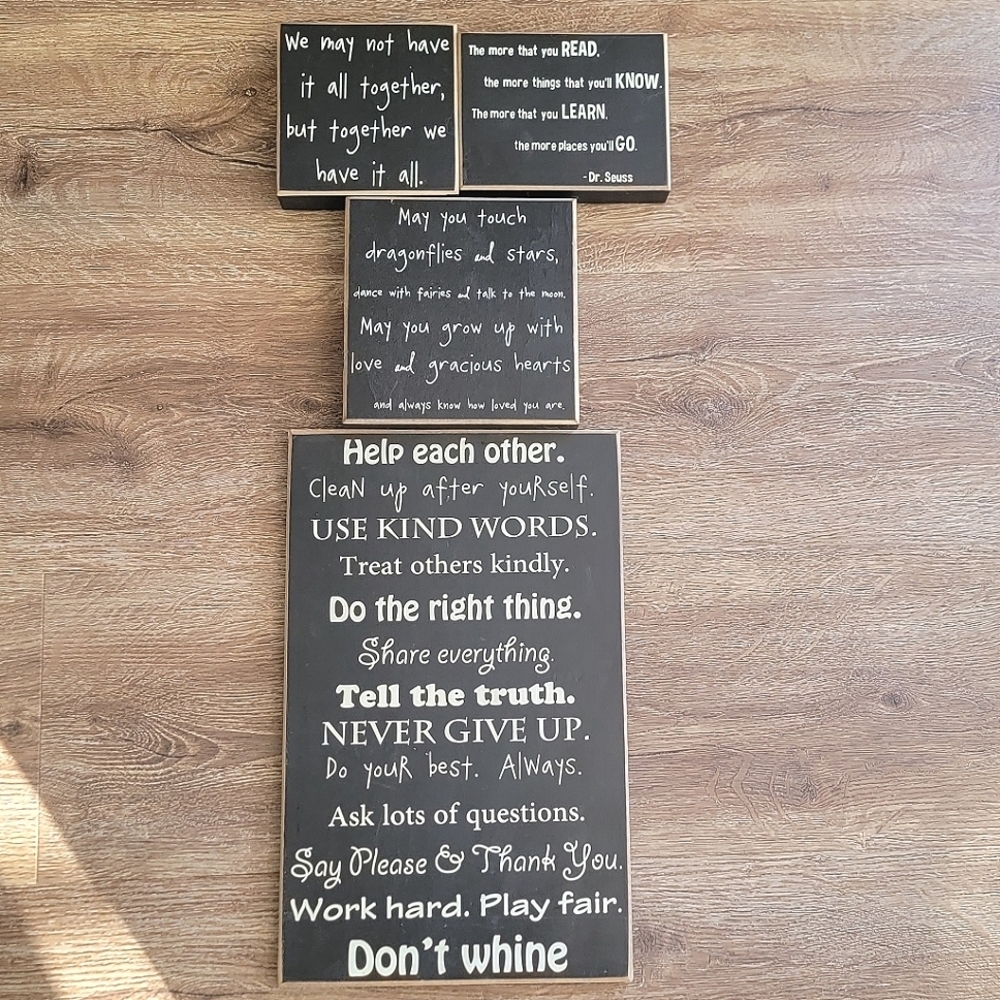 We may not have
it all together,
but together we
have it all.
The more that you READ,
the more things that you'll KNOW.
The more that you LEARN.
the more places you'll GO.
-Dr. Seuss
May you touch
dragonflies and stars,
dance with fairies and talk to the moon.
May you grow up with
love and gracious hearts
and always know how loved you are.
Help each other.
CleaN up after youRself.
USE KIND WORDS.
Treat others kindly.
Do the right thing.
Share everything.
Tell the truth.
NEVER GIVE UP.
Do youR best. AlWays.
Ask lots of questions.
Say Please & Thank You.
Work hard. Play fair.
Don't whine